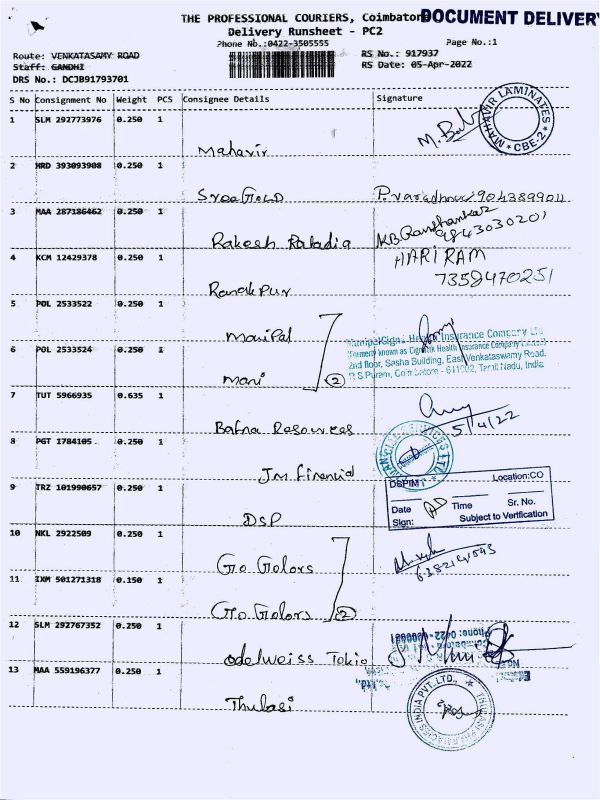 THE PROFESSIONAL COURIERS, Coimbatore
DOCUMENT DELIVERY
Delivery Runsheet - PC2
Phone No.:0422-3505555
Page No.:1
Route: VENKATASAMY ROAD
RS No.: 917937
Staff: GANDHI
RS Date: 05-Apr-2022
DRS No.: DCJB91793701
S No Consignment No Weight PCS Consignee Details Signature
1 SLM 292773976 0.250 1
MAHAVIR LAMINATES CBE-2
Mahavir
2 HRD 393093908 0.250 1
Sree Gold P.varadhan 9043899011
3 MAA 287186462 0.250 1
Rakesh Raladia
9843030201
4 KCM 12429378 0.250 1
HARI RAM
Ranakpur 7358470251
5 POL 2533522 0.250 1
Manipal
ManipalCigna Health Insurance Company Ltd
(formerly known as CignaTTK Health Insurance Company Limited)
6 POL 2533524 0.250 1
2nd floor, Sasha Building, East Venkataswamy Road,
R S Puram, Coimbatore - 611002, Tamil Nadu, India
Mani 2
7 TUT 5966935 0.635 1
Bafna Resources 5/4/22
8 PGT 1784105 0.250 1
JM Financial
9 TRZ 101990657 0.250 1
DSPIM Location:CO
Date Time Sr. No.
Sign: Subject to Verification
DSP
10 NKL 2922509 0.250 1
Go Golors
11 IXM 501271318 0.150 1
Go Golors 2
12 SLM 292767352 0.250 1
odelweiss Tokio
Phone: 0422
13 MAA 559196377 0.250 1
Thulasi
THULASI PHARMACIES INDIA PVT. LTD.,